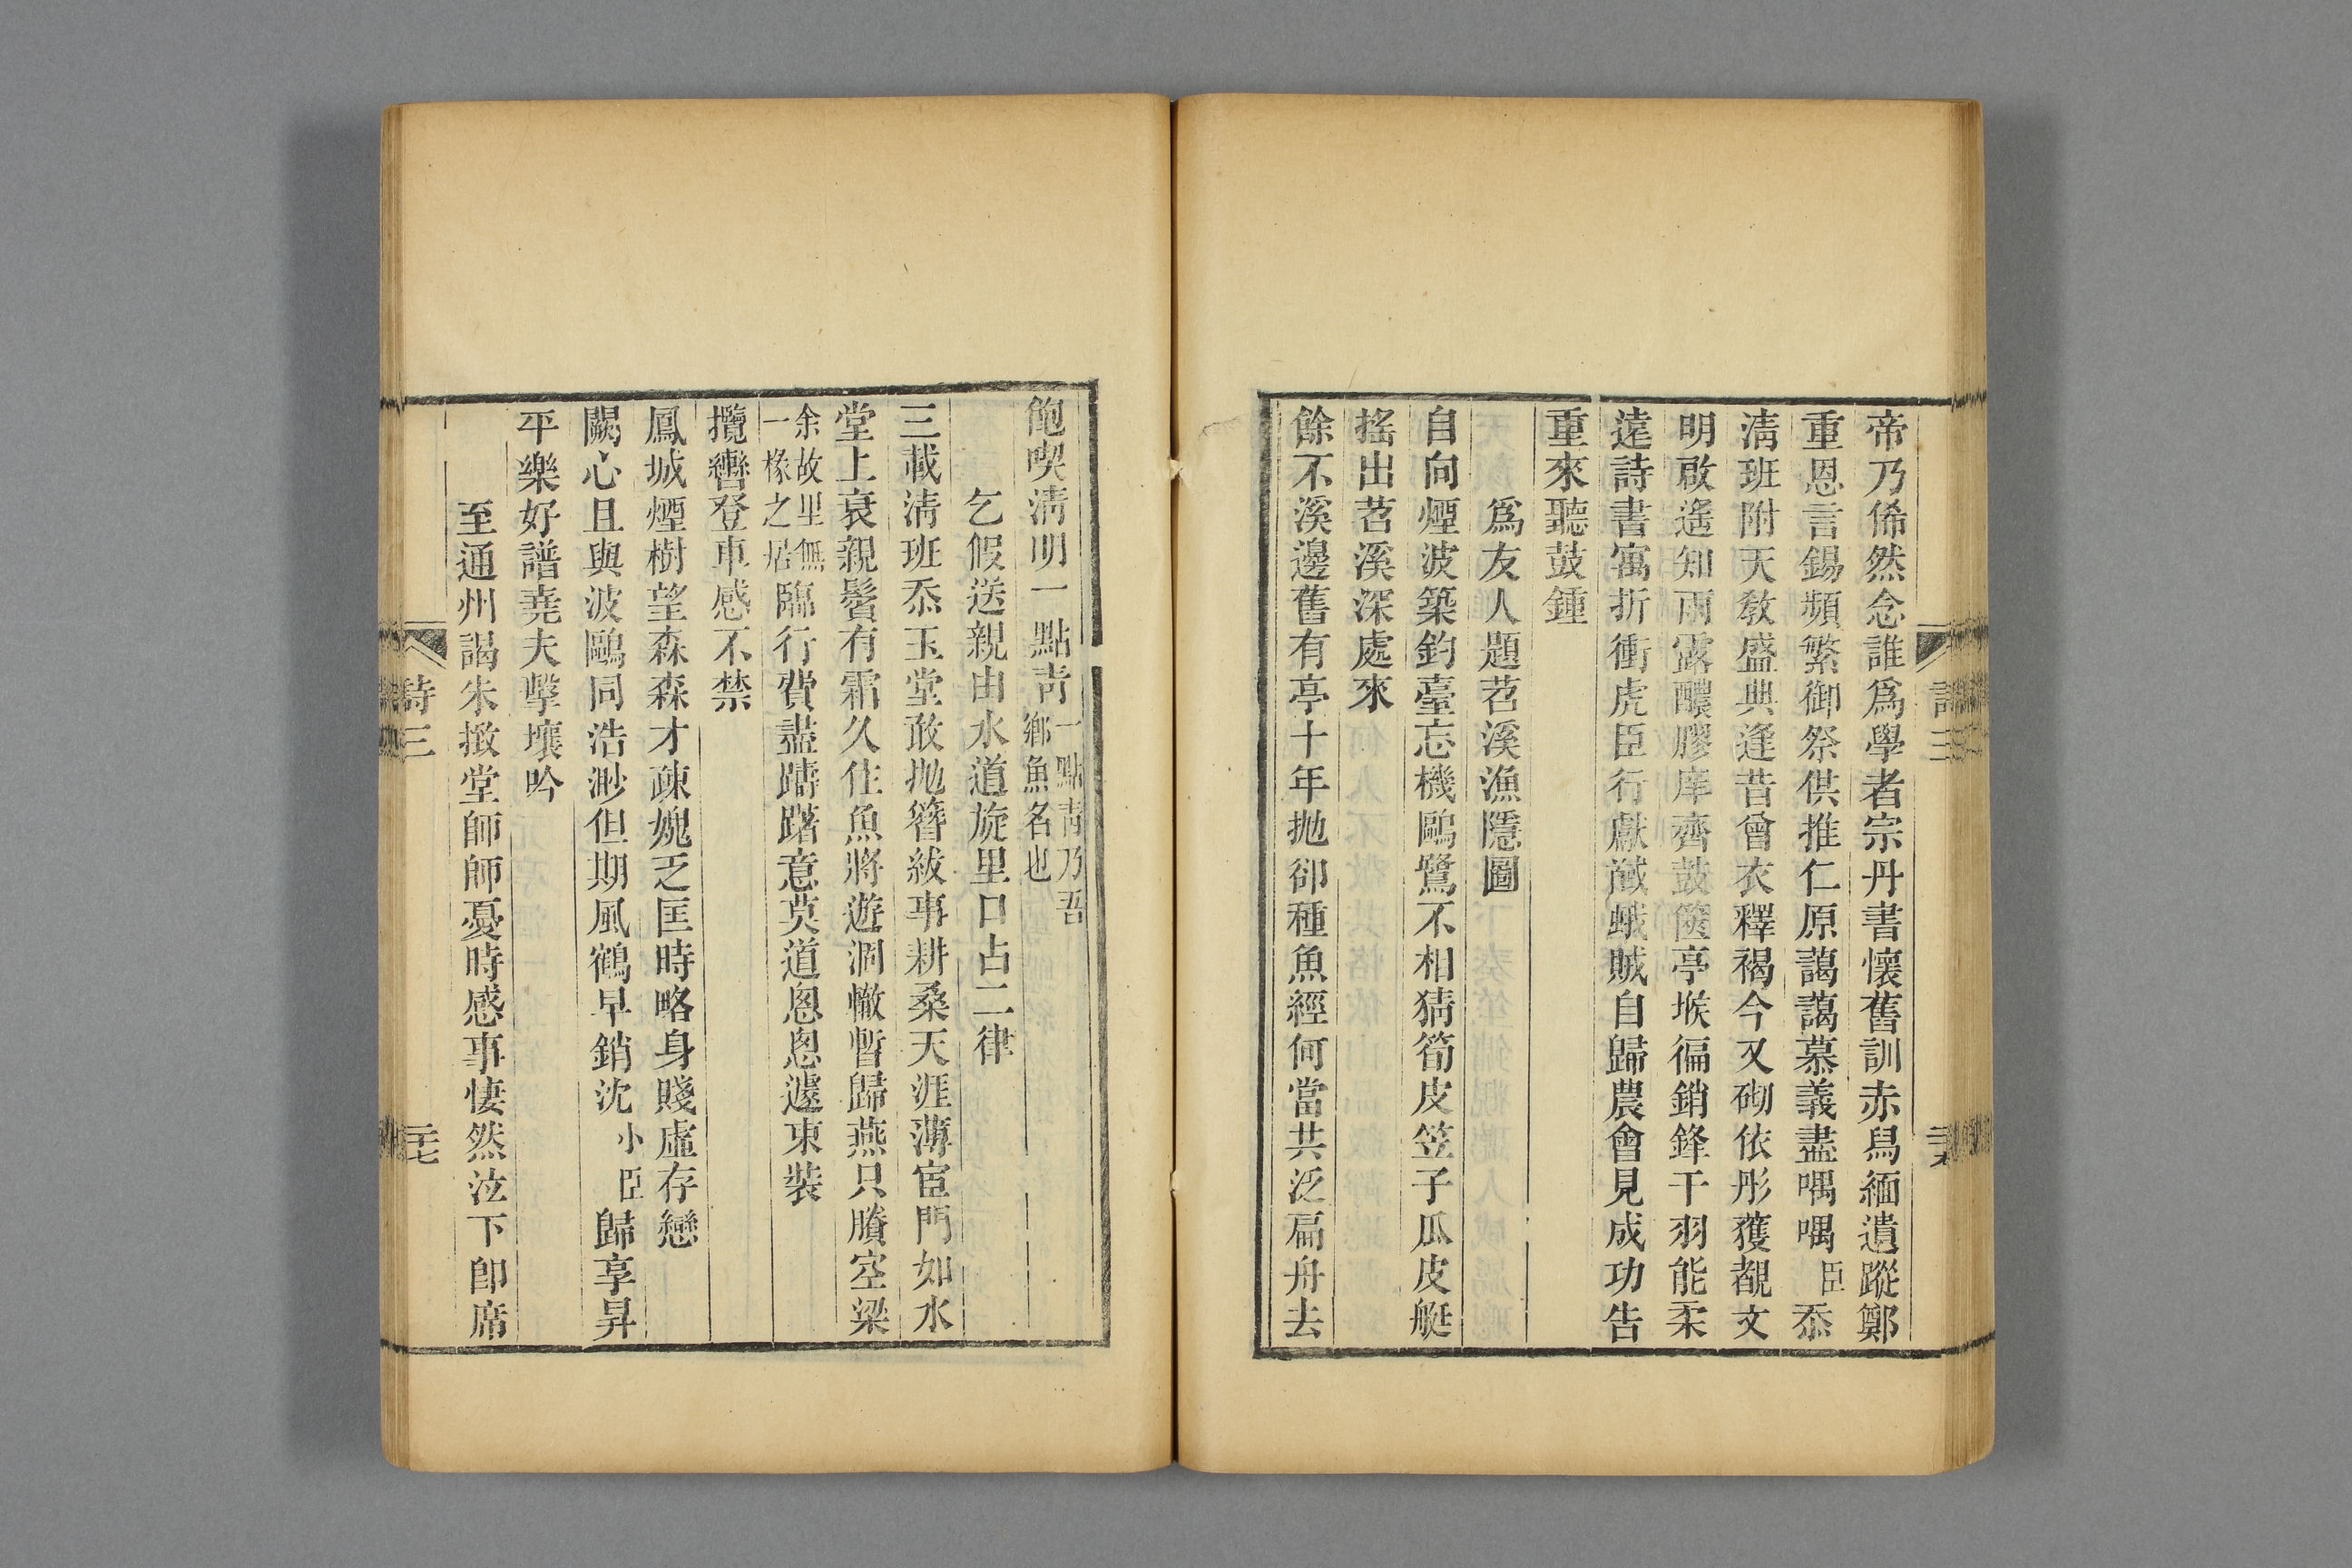 詩三
帝乃俙然念誰爲學者宗丹書懷舊訓赤舃緬遺蹤鄭
重恩言錫頻繁御祭供推仁原藹藹慕義盡喁喁臣忝
淸班附天敎盛典逢昔曾衣釋褐今又砌依彤獲覩文
明啟遙知雨露醲膠庠齊鼓篋亭堠徧銷鋒干羽能柔
遠詩書寓折衝虎臣行獻馘蛾賊自歸農會見成功告
重來聽鼓鍾
爲友人題苕溪漁隱圖
自向煙波築釣臺忘機鷗鷺不相猜筍皮笠子瓜皮艇
搖出苕溪深處來
餘不溪邊舊有亭十年拋卻種魚經何當共泛扁舟去
飽喫淸明一點靑一點靑乃吾鄕魚名也
乞假送親由水道旋里口占二律
三載淸班忝玉堂敢拋簪紱事耕桑天涯薄宦門如水
堂上衰親鬢有霜久住魚將遊涸轍暫歸燕只賸空梁
余故里無一椽之居臨行費盡躊躇意莫道恩恩遽束裝
攬轡登車感不禁
鳳城煙樹望森森才疎媿乏匡時略身賤虛存戀
闕心且與波鷗同浩渺但期風鶴早銷沈小臣歸享昇
平樂好譜堯夫擊壤吟
至通州謁朱撴堂師師憂時感事悽然泣下卽席
詩三
三七